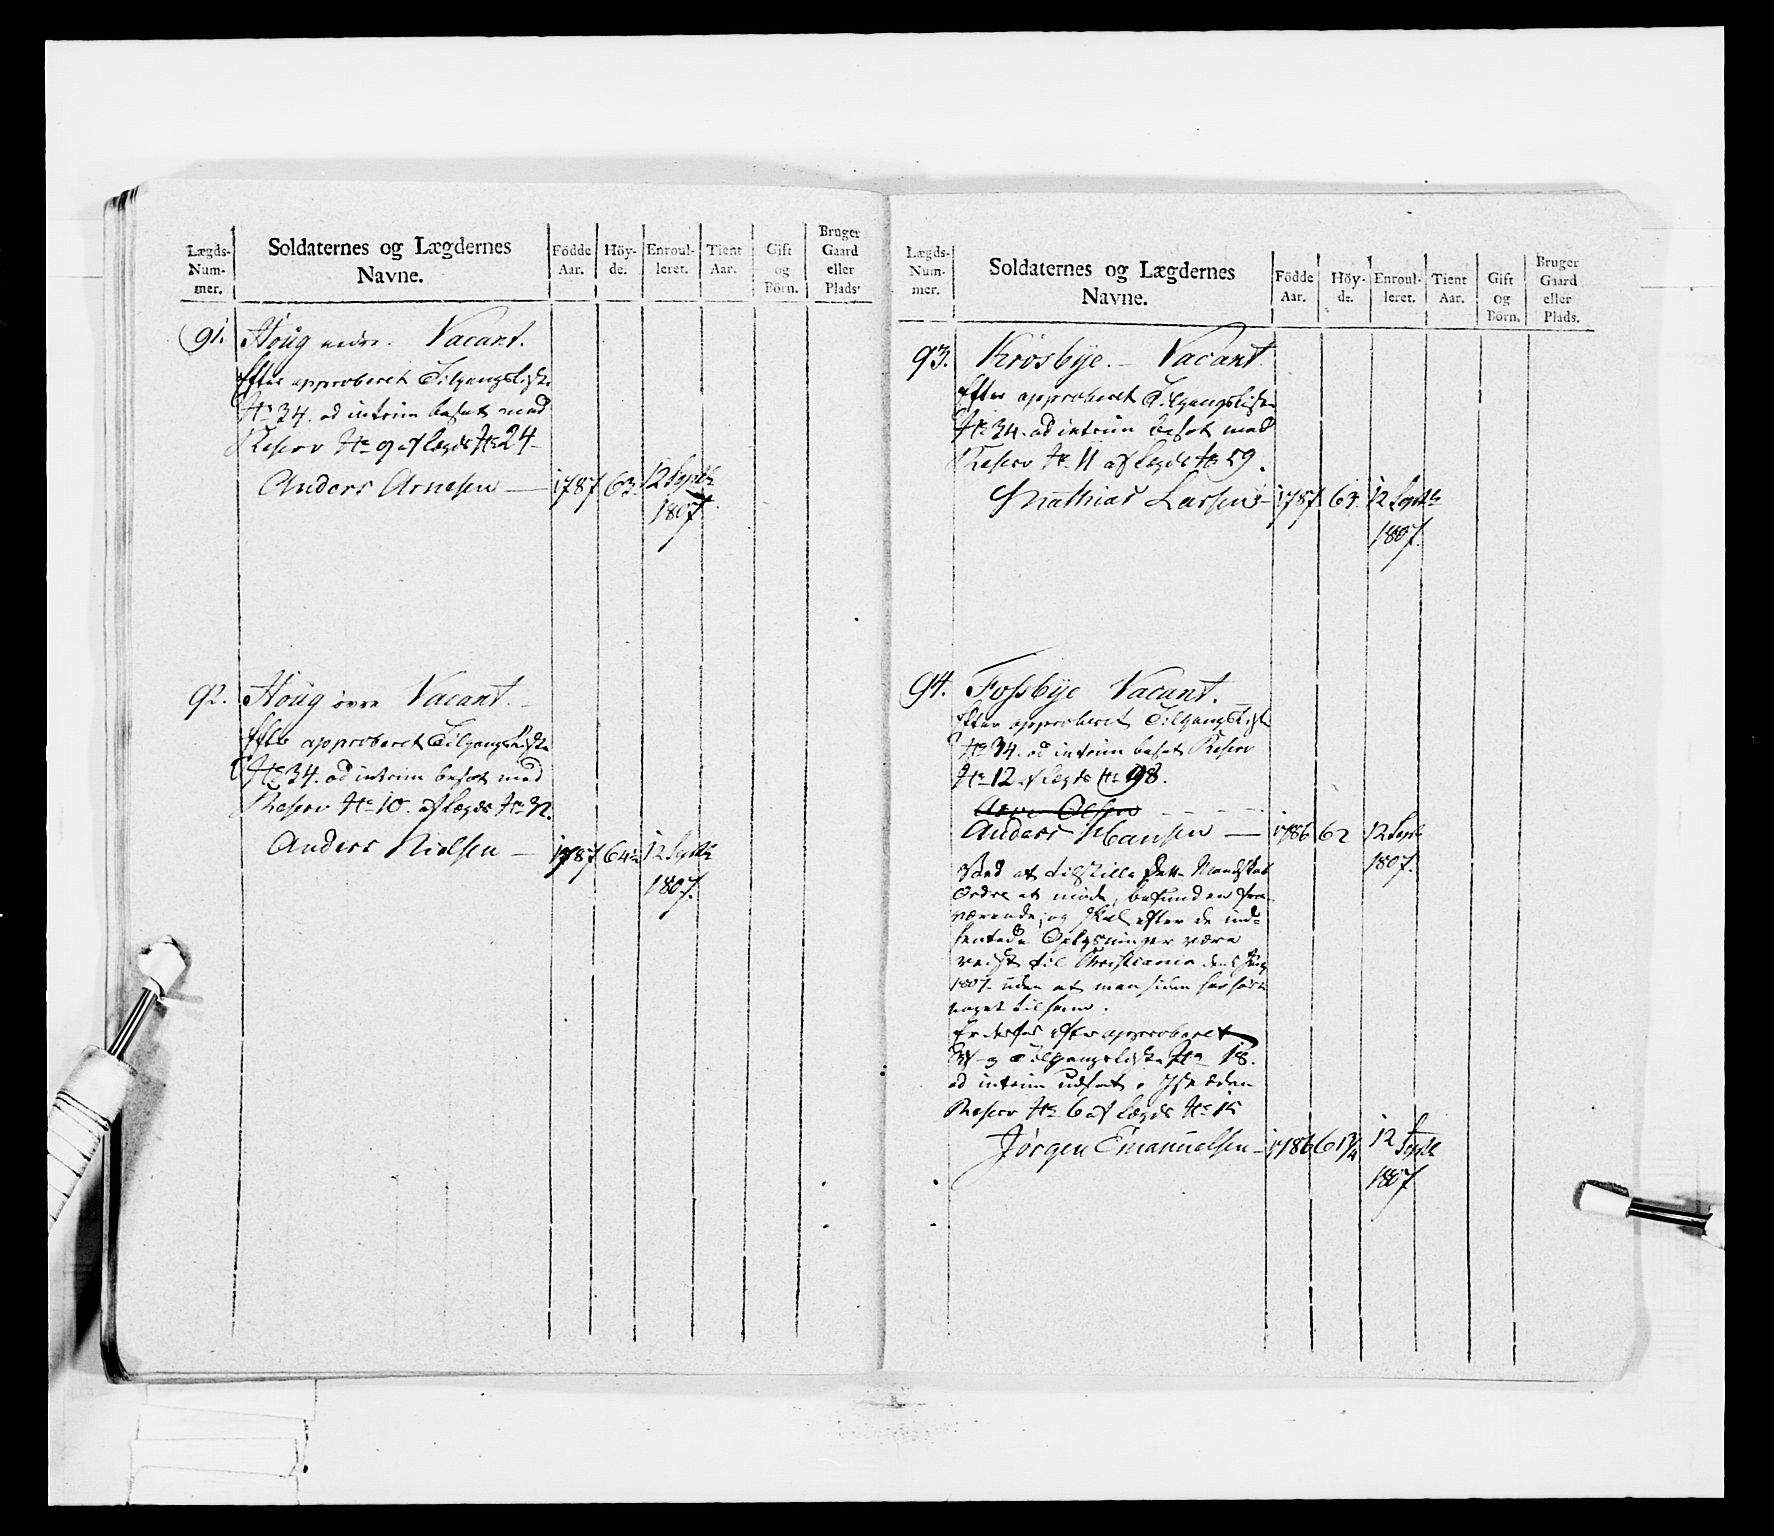 Lægds-
Num-
mer.
Soldaternes og Lægdernes
Navne.
Födde
Aar.
Höy-
de.
Enroul-
leret.
Tient
Aar.
Gift
og
Börn.
Bruger
Gaard
eller
Plads.
91. Houg nedre. Vacant.
Efter approberet Tilgangsliste
No 34. ad interim besat med
Reserv No 9 af Legds No 24
Anders Arnesen — 1787. 63. 12 Septbr
1807.
92. Houg övre Vacant.
Efter approberet Tilgangsliste
No 34. ad interim besat med
Reserv No 10. af Lægds No 32.
Anders Nielsen — 1787. 64 12 Septbr
1807.
Lægds-
Num-
mer.
Soldaternes og Lægdernes
Navne.
Födde
Aar.
Höy-
de.
Enroul-
leret.
Tient
Aar.
Gift
og
Börn.
Bruger
Gaard
eller
Plads.
93. Krosbÿe. — Vacant.
Efter approberet Tilgangsliste
No 34. ad interim besat med
Reserv No 11 af Legds No 59.
Mathias Larsen — 1787. 63. 12 Septbr
1807.
94. Fossbÿe Vacant.
Efter approberet Tilgangsliste
No 34. ad interim besat Reserv
No 12 af Legds No 98.
Arne Olsen
Anders Hansen — 1786 62 12 Septbr
1807.
Ved at tilstille dette Mandskab
Ordre at møde, befunden fra-
værende, og skal efter de ind-
hentede Oplysninger være
reist til Christiania
1807. uden at man siden har
til ham.
Er derfor efter approberet
Af- og Tilgangsliste No 18.
ad interim udsat.
Reserv No 6 af Lægds No 15
Jørgen Emanuelsen — 1786 61 3/4 12 Septbr
1807